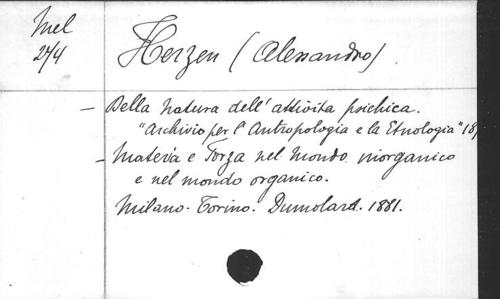 Mel
274
Herzen (Alessandro)
- Della natura dell'attività psichica.
"Archivio per l'Antropologia e la Etnologia" 18
- Materia e Forza nel Mondo inorganico
e nel mondo organico.
Milano-Torino. Dumolard. 1881.